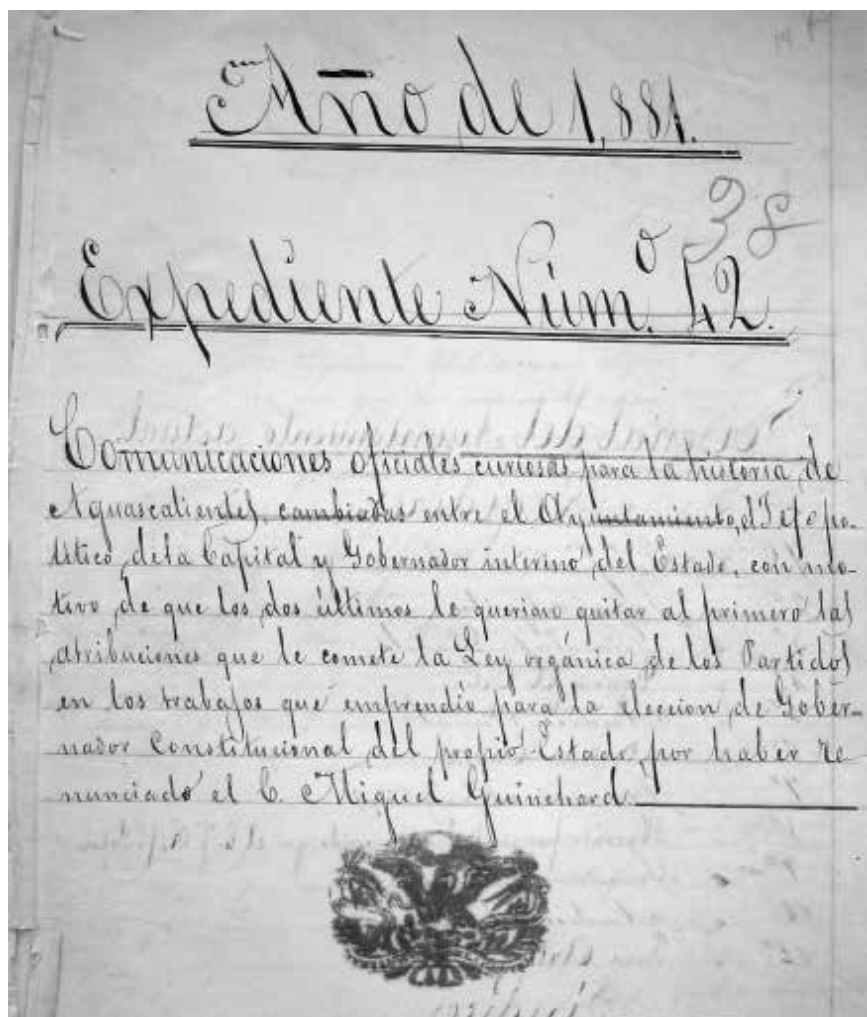 Año de 1,881.
38
Expediente Núm.º 42.
Comunicaciones oficiales curiosas para la historia, de
Aguascalientes, cambiadas entre el Ayuntamiento, el Jefe po-
lítico, de la Capital y Gobernador interino, del Estado, con mo-
tivo, de que los dos últimos le querian quitar al primero las
atribuciones que le comete la Ley orgánica, de los Partidos
en los trabajos que emprendió para la eleccion, de Gober-
nador Constitucional, del propio Estado, por haber re-
nunciado el C. Miguel Guinchard.